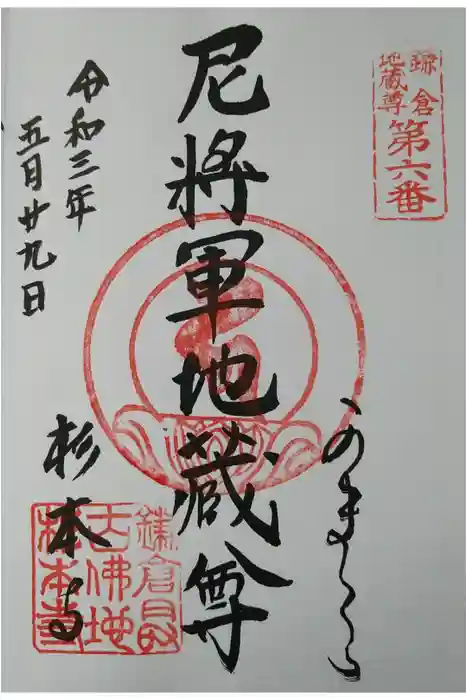 鎌倉
地蔵尊
第六番
尼將軍地蔵尊
令和三年
五月廿九日
杉本寺
鎌倉最
古佛地
杉本寺